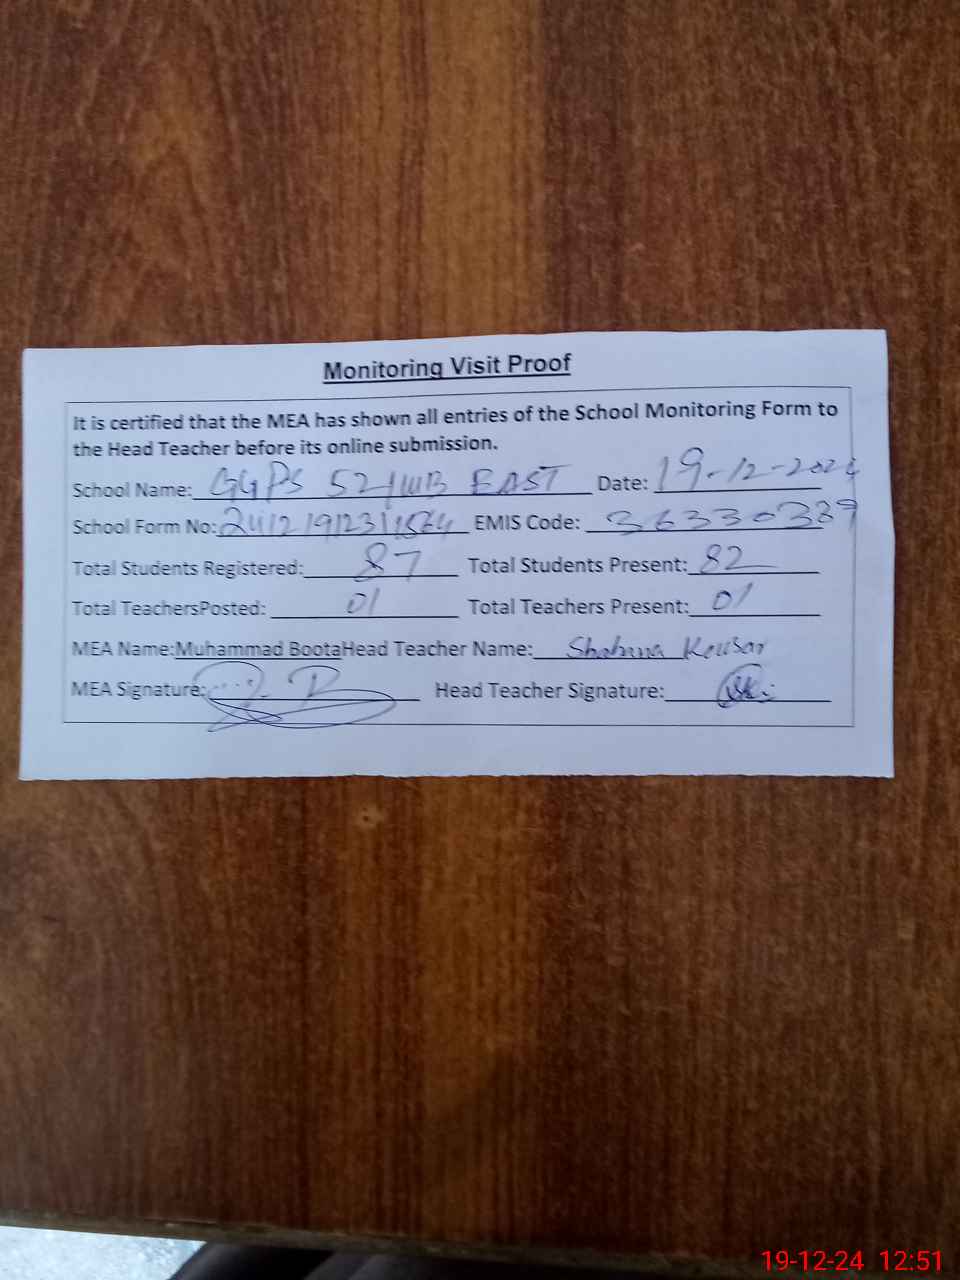 Monitoring Visit Proof
It is certified that the MEA has shown all entries of the School Monitoring Form to
the Head Teacher before its online submission.
School Name: GGPS 52/WB EAST Date: 19-12-2024
School Form No: EMIS Code: 36330389
Total Students Registered: 87 Total Students Present: 82
Total TeachersPosted: 01 Total Teachers Present: 01
MEA Name:Muhammad BootaHead Teacher Name: Kousar
MEA Signature: Head Teacher Signature:
19-12-24 12:51